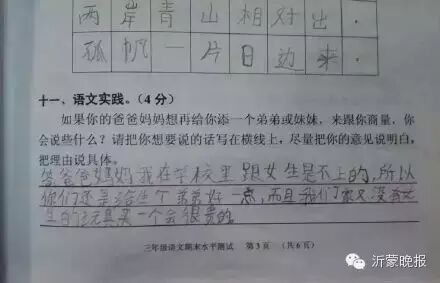 两岸青山相对出.
孤帆一片日边来.
十一、语文实践。(4分)
如果你的爸爸妈妈想再给你添一个弟弟或妹妹，来跟你商量，你
会说些什么？请把你想要说的话写在横线上，尽量把你的意见说明白，
把理由说具体。
答爸爸妈妈我在学校里跟女生是不上的,所以
你们还是给生个弟弟好一点,而且我们家又没有女
生的玩具买一个会很贵的
三年级语文期末水平测试 第3页 (共6页)
沂蒙晚报